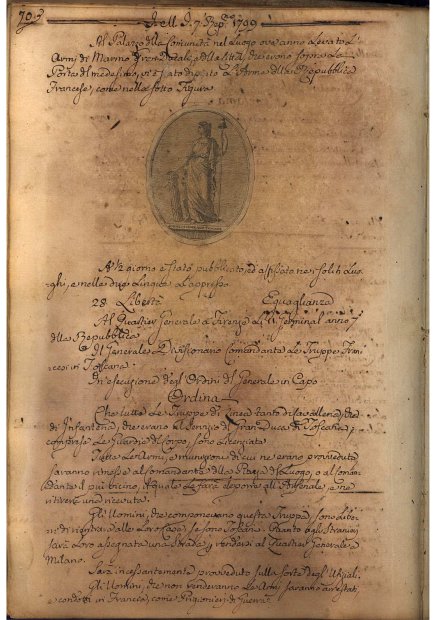 Al Palazzo della Comunità nel Luogo ove anno Levato L'
Armi di Marmo
Porta del medesimo, vi è stato dipinto L'Arme della Repubblica
Francese, come nella sotto Figura
giorno è stato pubblicato, ed affissato nei soliti Luo=
ghi, e nelle due Lingue L'appresso
28. Libertà Eguaglianza
Al Quartier Generale di Firenze Germinal anno 7
della Repubblica
Il Generale Divisionario Comandante Le Truppe Fran=
cesi in Toscana
In esecuzione degl'Ordini del Generale in Capo
Ordina
Che tutte Le Truppe di Linea tanto di Cavalleria, che
di Infanteria, che erano al Servizio del Gran Duca di Toscana,
comprese Le Guardie del Corpo, sono Licenziate
Tutte Le Armi, e munizioni di cui ne erano provvedute
saranno rimesse al Comandante della Piazza di Luogo, o al Coman=
dante il più vicino, il quale Le farà deporre all'Arsenale, e ne
ritirerà una ricevuta.
Gli Uomini, che componevano questa Truppa, sono Libe=
ri di ritornare alle Loro Case, se sono Toscani. Quanto agli Stranieri
sarà Loro assegnata una strada per rendersi al Quartier Generale a
Milano.
Sarà incessantemente provveduto sulla sorte degl'Ufiziali.
Gli Uomini, che non renderanno Le Armi saranno arrestati,
e condotti in Francia, come Prigionieri di Guerra.